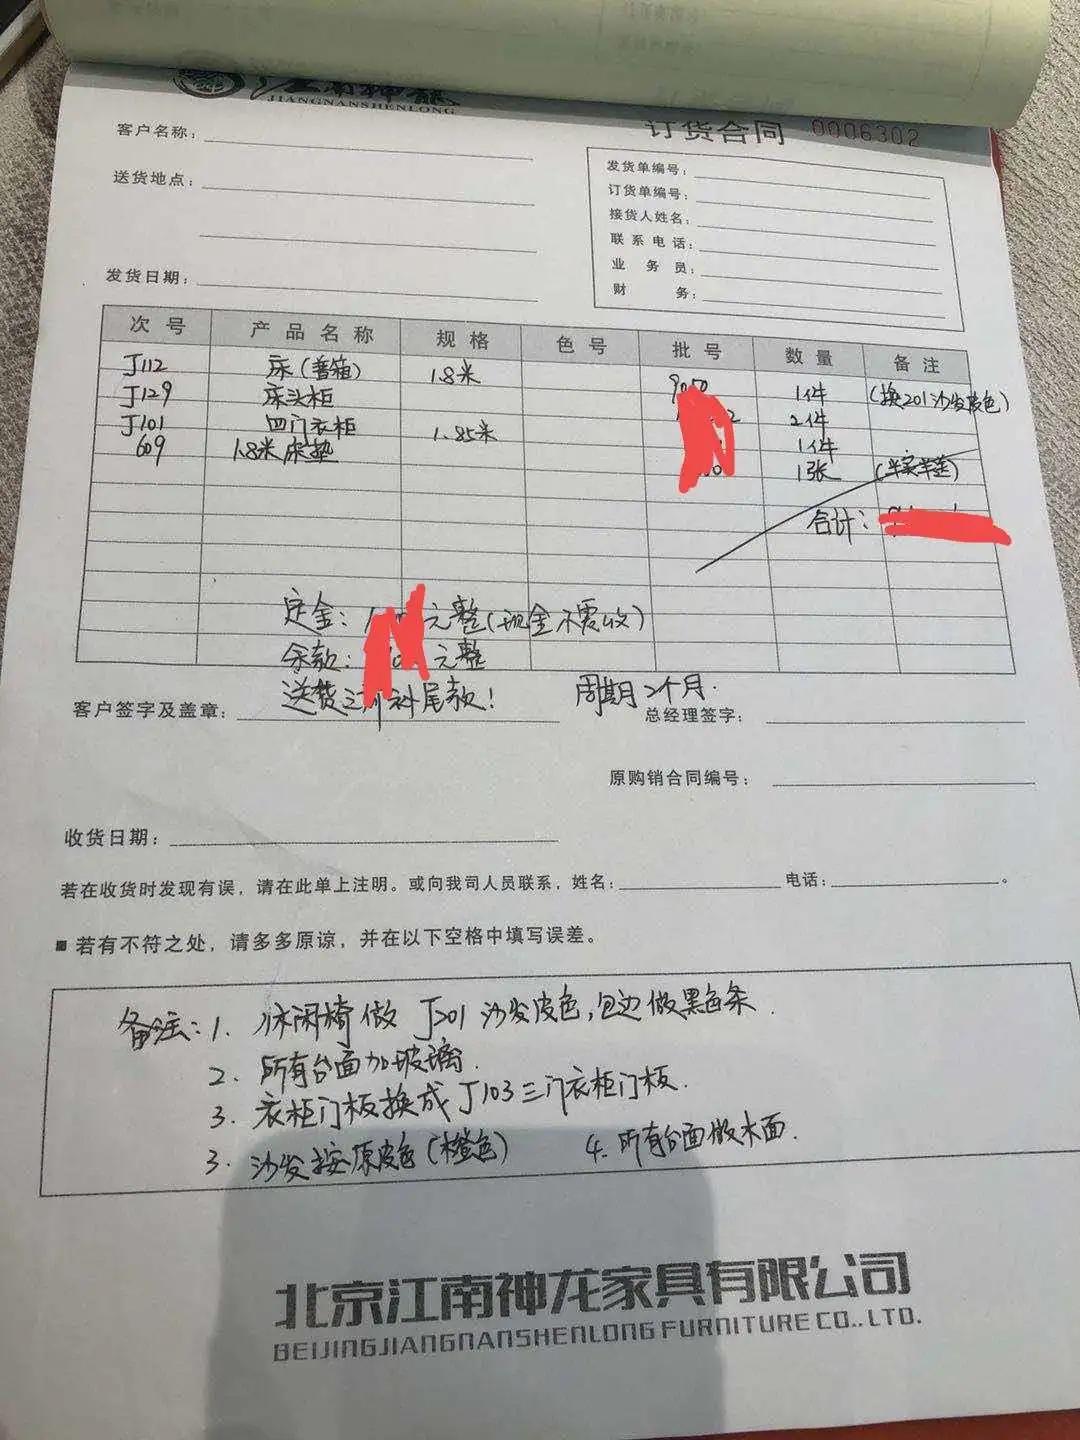 江南神龍
JIANGNANSHENLONG
订货合同 0006302
客户名称：
送货地点：
发货日期：
发货单编号：
订货单编号：
接货人姓名：
联系电话：
业务员：
财务：
次号 产品名称 规格 色号 批号 数量 备注
J112 床(普箱) 1.8米 9050 1件 (换201沙发皮色)
J129 床头柜 2件
J101 四门衣柜 1.85米 1件
609 1.8米床垫 1张 (半实半连)
合计：
定金： 元整(现金不需收)
余款： 元整
送货之前补尾款！ 周期2个月.
客户签字及盖章： 总经理签字：
原购销合同编号：
收货日期：
若在收货时发现有误，请在此单上注明。或向我司人员联系，姓名： 电话： 。
■ 若有不符之处，请多多原谅，并在以下空格中填写误差。
备注：1. 休闲椅做J201沙发皮色，包边做黑色条.
2. 所有台面加玻璃.
3. 衣柜门板换成J103三门衣柜门板.
3. 沙发按原皮色(橙色) 4. 所有台面做木面.
北京江南神龙家具有限公司
BEIJINGJIANGNANSHENLONG FURNITURE CO.,LTD.